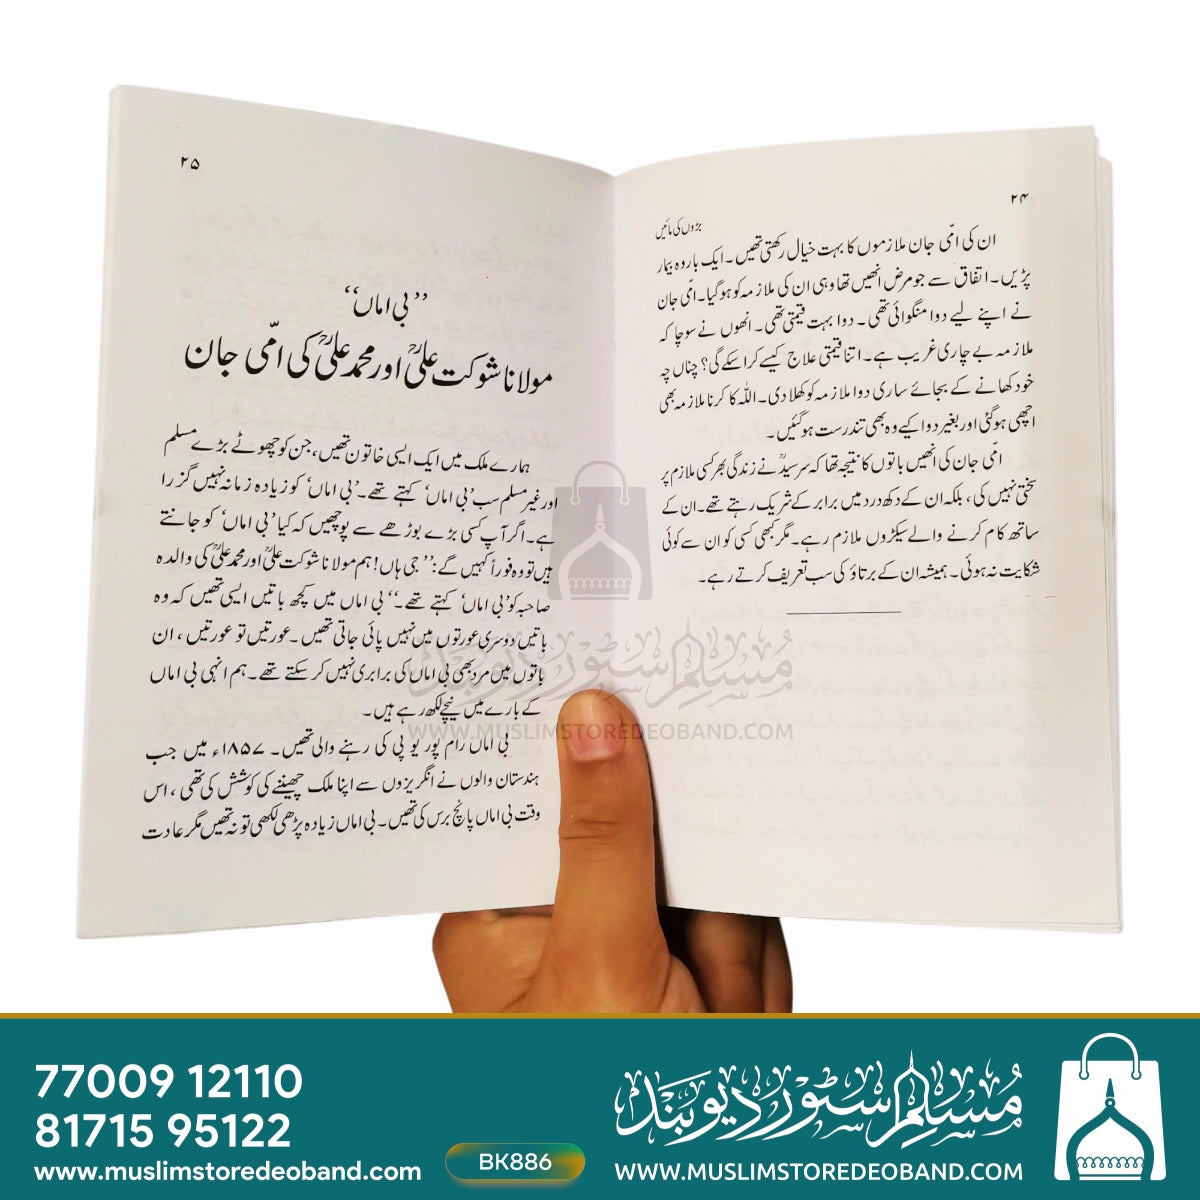 ۲۴
بڑوں کی مائیں
ان کی امّی جان ملازموں کا بہت خیال رکھتی تھیں۔ ایک بار وہ بیمار
پڑیں۔ اتفاق سے جو مرض انھیں تھا وہی ان کی ملازمہ کو ہو گیا۔ امّی جان
نے اپنے لیے دوا منگوائی تھی۔ دوا بہت قیمتی تھی۔ انھوں نے سوچا کہ
ملازمہ بے چاری غریب ہے۔ اتنا قیمتی علاج کیسے کرا سکے گی؟ چناں چہ
خود کھانے کے بجائے ساری دوا ملازمہ کو کھلا دی۔ اللہ کا کرنا ملازمہ بھی
اچھی ہو گئی اور بغیر دوا کیے وہ بھی تندرست ہو گئیں۔
امّی جان کی انھیں باتوں کا نتیجہ تھا کہ سرسیدؒ نے زندگی بھر کسی ملازم پر
سختی نہیں کی، بلکہ ان کے دکھ درد میں برابر کے شریک رہتے تھے۔ ان کے
ساتھ کام کرنے والے سیکڑوں ملازم رہے۔ مگر کبھی کسی کو ان سے کوئی
شکایت نہ ہوئی۔ ہمیشہ ان کے برتاؤ کی سب تعریف کرتے رہے۔
۲۵
’’بی اماں‘‘
مولانا شوکت علیؒ اور محمد علیؒ کی امّی جان
ہمارے ملک میں ایک ایسی خاتون تھیں، جن کو چھوٹے بڑے مسلم
اور غیر مسلم سب ’بی اماں‘ کہتے تھے۔ ’بی اماں‘ کو زیادہ زمانہ نہیں گزرا
ہے۔ اگر آپ کسی بڑے بوڑھے سے پوچھیں کہ کیا ’بی اماں‘ کو جانتے
ہیں تو وہ فوراً کہیں گے: ’’جی ہاں! ہم مولانا شوکت علیؒ اور محمد علیؒ کی والدہ
صاحبہ کو ’بی اماں‘ کہتے تھے۔‘‘ بی اماں میں کچھ باتیں ایسی تھیں کہ وہ
باتیں دوسری عورتوں میں نہیں پائی جاتی تھیں۔ عورتیں تو عورتیں، ان
باتوں میں مرد بھی بی اماں کی برابری نہیں کر سکتے تھے۔ ہم انہی بی اماں
کے بارے میں نیچے لکھ رہے ہیں۔
بی اماں رام پور یو پی کی رہنے والی تھیں۔ ۱۸۵۷ء میں جب
ہندستان والوں نے انگریزوں سے اپنا ملک چھیننے کی کوشش کی تھی، اس
وقت بی اماں پانچ برس کی تھیں۔ بی اماں زیادہ پڑھی لکھی تو نہ تھیں مگر عادت
مسلم سٹور دیوبند
WWW.MUSLIMSTOREDEOBAND.COM
77009 12110
81715 95122
www.muslimstoredeoband.com
BK886
مسلم سٹور دیوبند
WWW.MUSLIMSTOREDEOBAND.COM